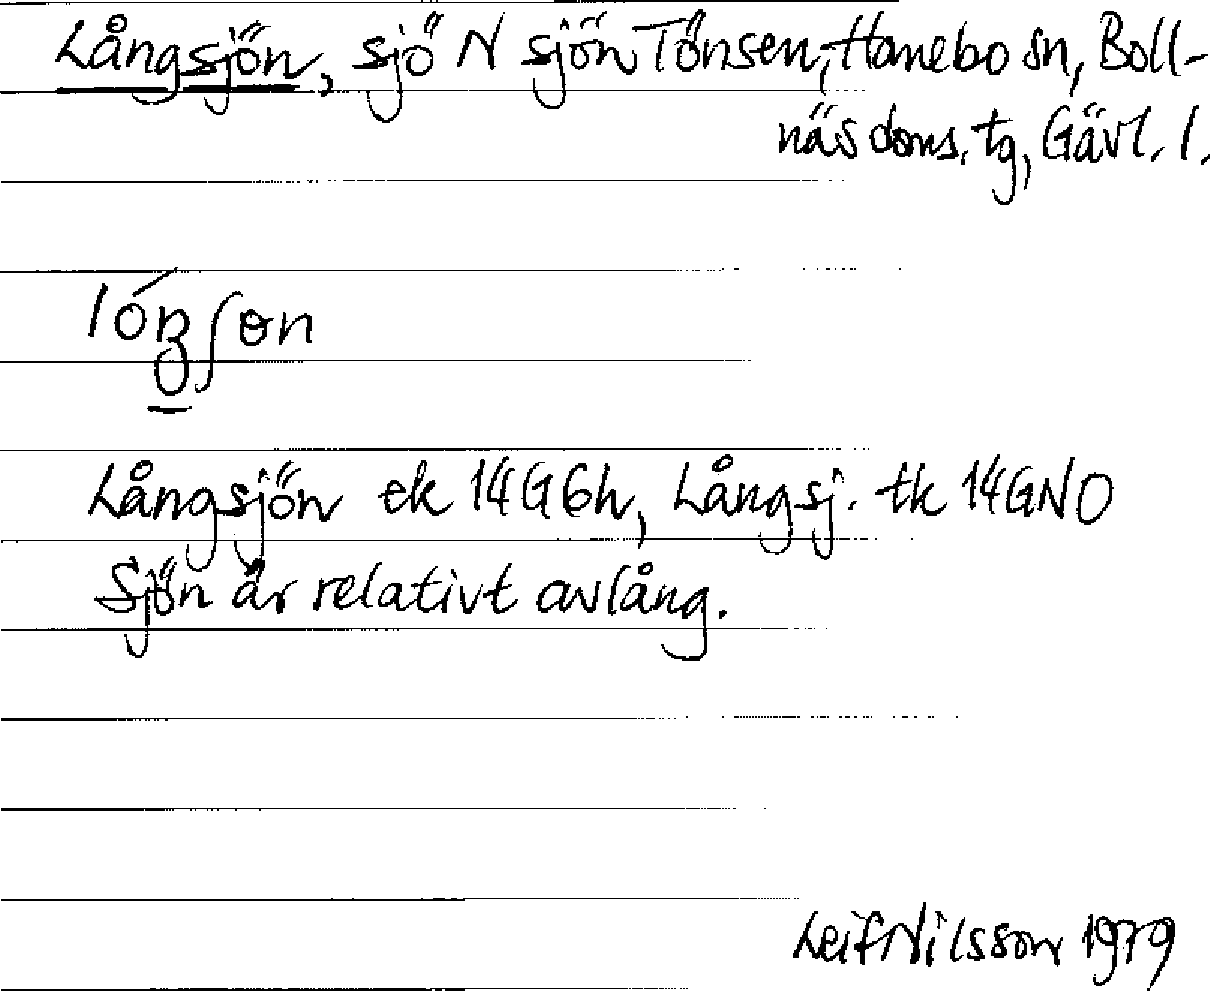 Långsjön, sjö N sjön Tönsen, Hanebo sn, Boll-
näs doms. tg, Gävl. l.
Långsjön ek 14G6h, Långsj. tk 14GNO
Sjön är relativt avlång.
Leif Nilsson 1979